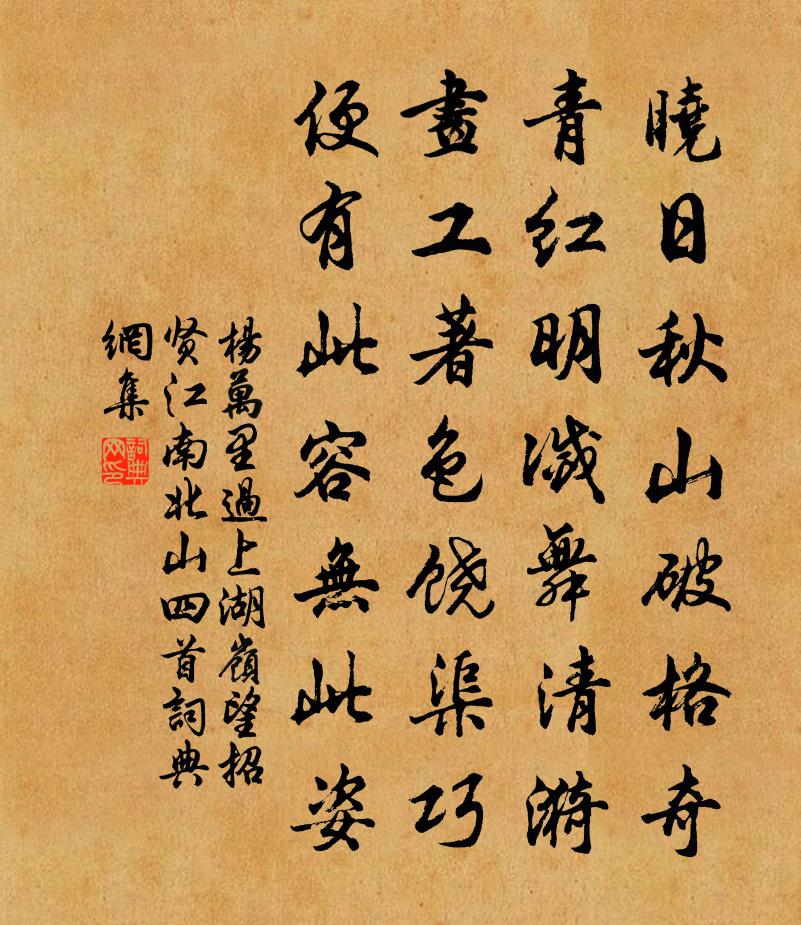 曉日秋山破格奇
青紅明滅舞清漪
畫工著色饒渠巧
便有此容無此姿
楊萬里過上湖嶺望招
贤江南北山四首詞典
網集
詞典
网印